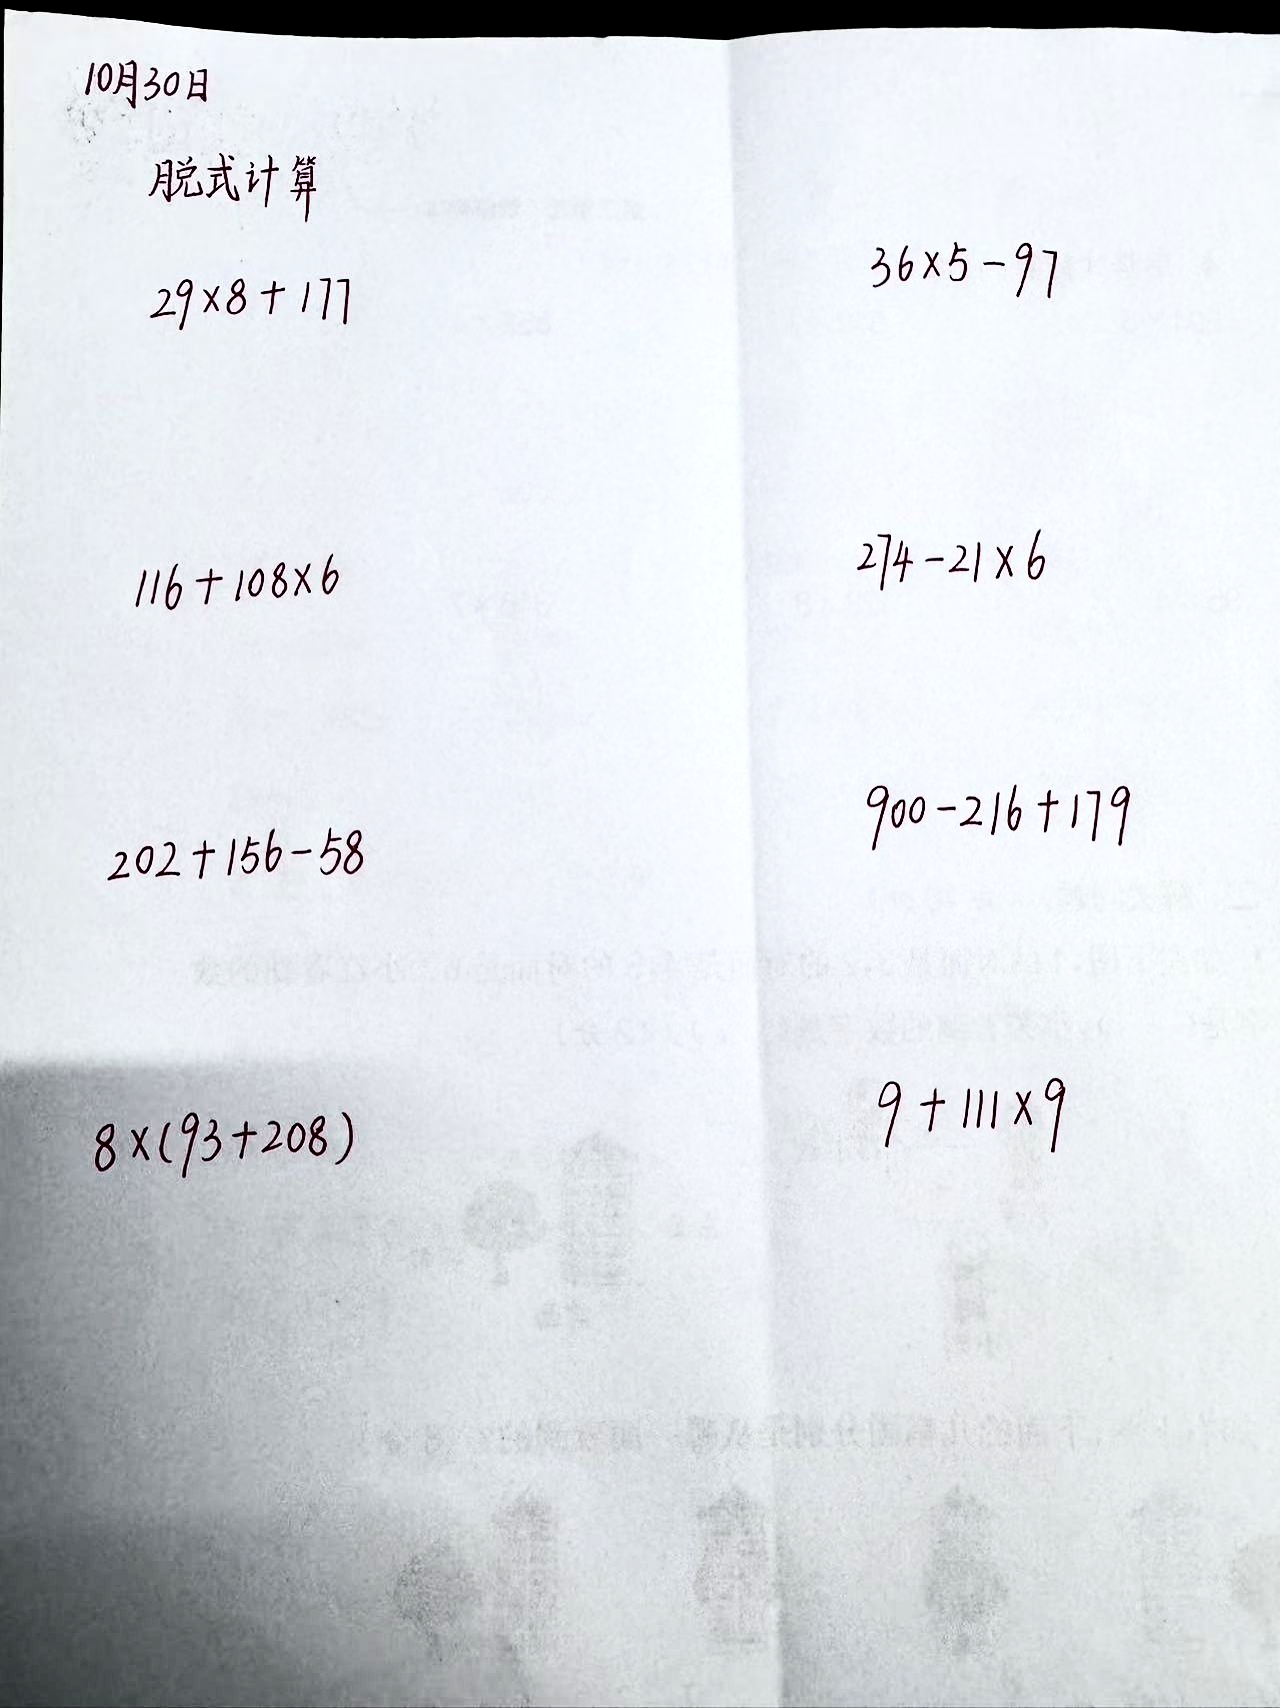 10月30日
脱式计算
29×8+177
36×5-97
116+108×6
274-21×6
202+156-58
900-216+179
8×(93+208)
9+111×9